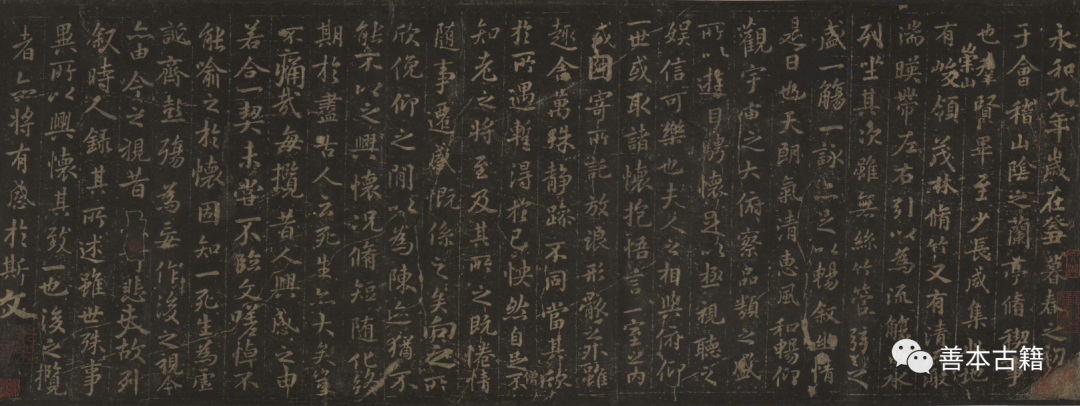 永和九年歲在癸丑暮春之初
于會稽山陰之蘭亭脩禊事
也群賢畢至少長咸集此地
有崇山峻領茂林脩竹又有清激
湍暎帶左右引以為流觴水
列坐其次雖無絲竹管弦之
盛一觴一詠亦足以暢敘幽情
是日也天朗氣清惠風和暢仰
觀宇宙之大俯察品類之盛
所以遊目騁懷足以極視聽之
娛信可樂也夫人之相與俯仰
一世或取諸懷抱悟言一室之內
或因寄所託放浪形骸之外雖
趣舍萬殊靜躁不同當其欣
於所遇暫得於己怏然自足不
知老之將至及其所之既惓情
隨事遷感慨係之矣向之所
欣俛仰之閒以為陳迹猶不
能不以之興懷況脩短隨化終
期於盡古人云死生亦大矣豈
不痛哉每攬昔人興感之由
若合一契未嘗不臨文嗟悼不
能喻之於懷固知一死生為虛
誕齊彭殤為妄作後之視今
亦由今之視昔悲夫故列
敘時人錄其所述雖世殊事
異所以興懷其致一也後之攬
者亦將有感於斯文
善本古籍